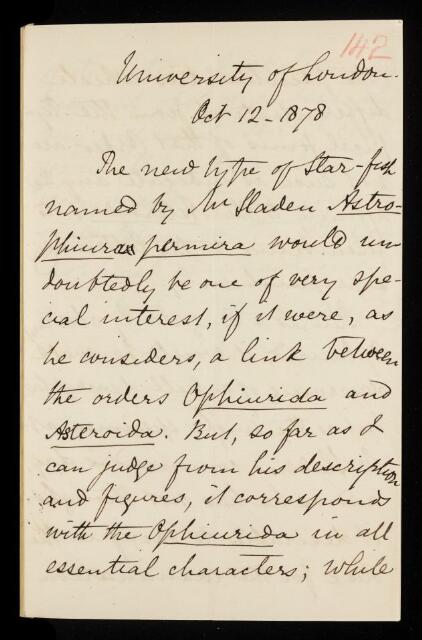 142
University of London.
Oct 12 - 1878
The new type of Star-fish
named by Mr Sladen Astro-
phiura permira would un
doubtedly be one of very spe-
cial interest, if it were, as
he considers, a link between
the orders Ophiurida and
Asteroida. But, so far as I
can judge from his description
and figures, it corresponds
with the Ophiurida in all
essential characters; while